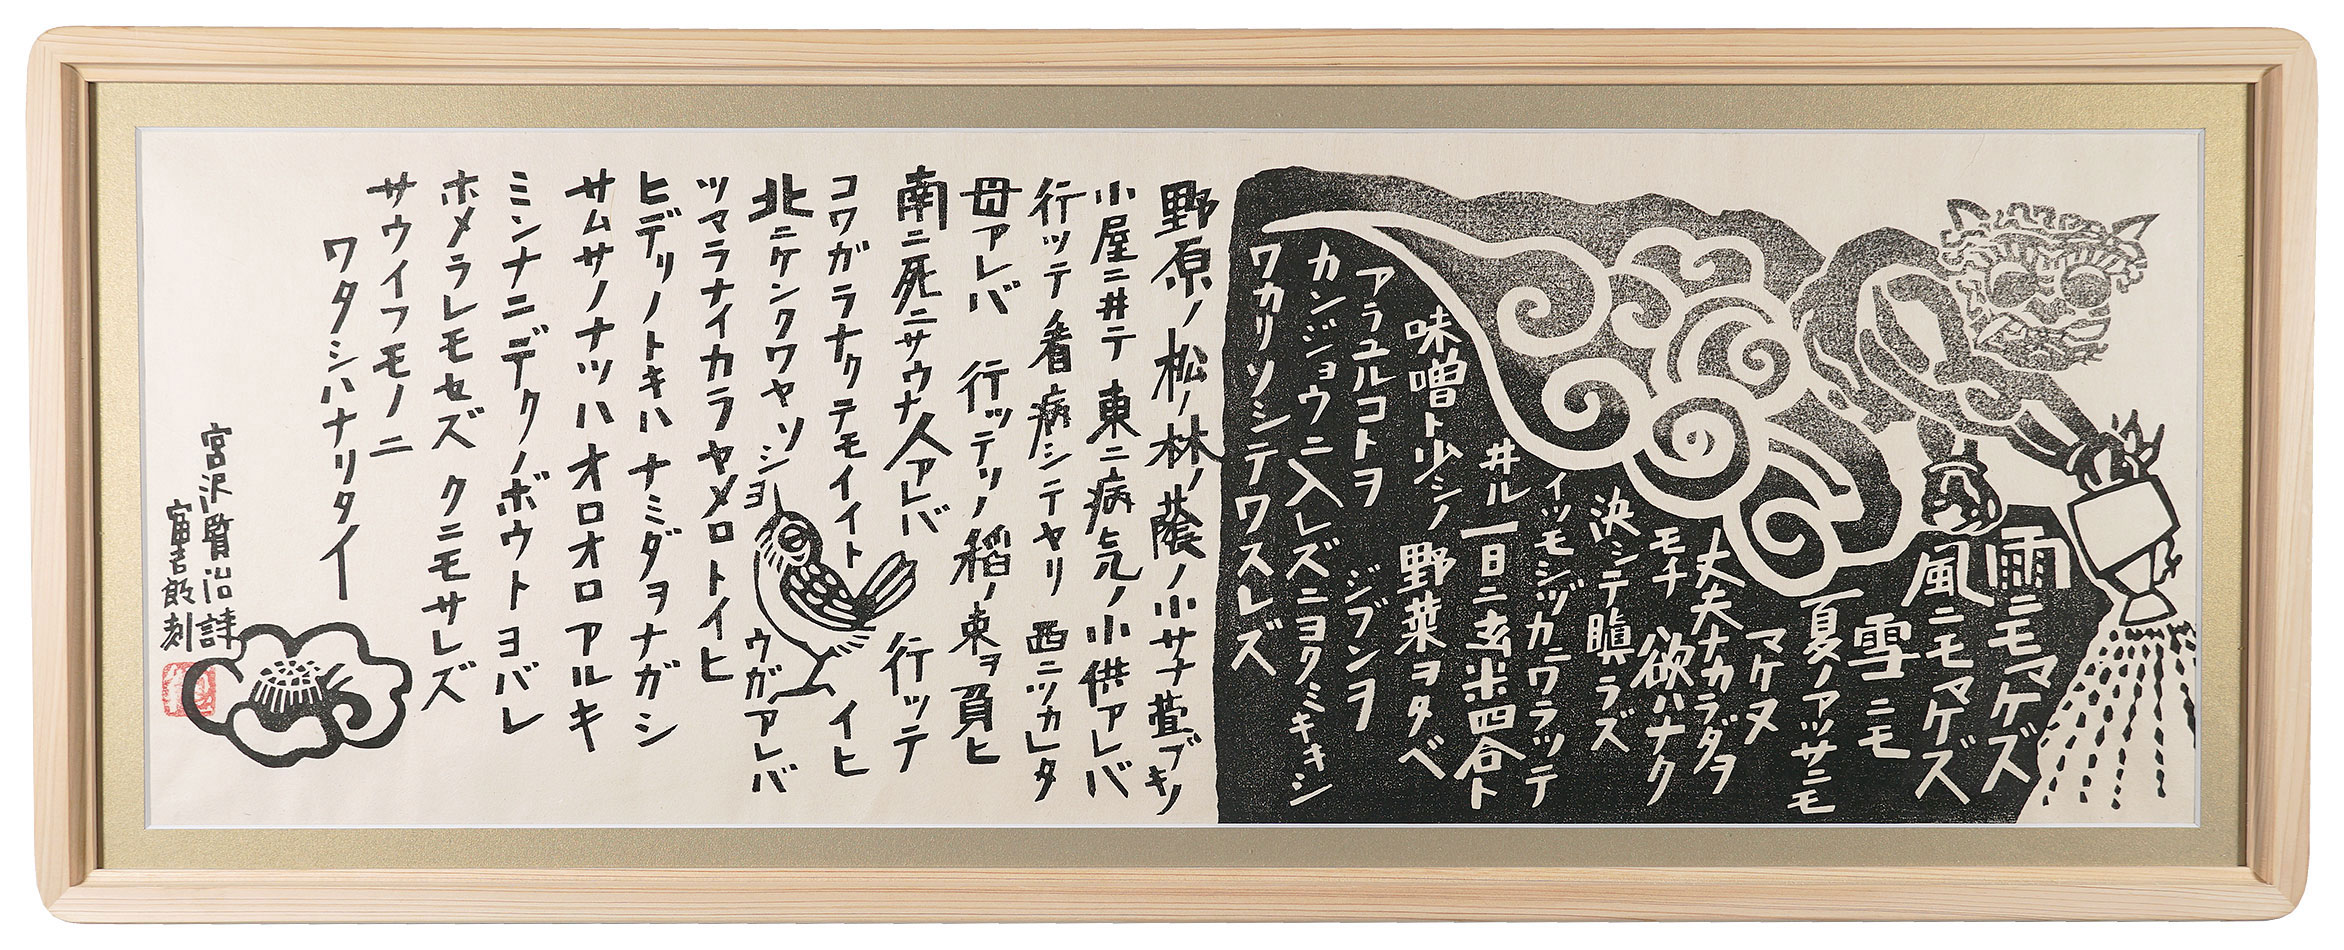 雨ニモマケズ
風ニモマケズ
雪ニモ
夏ノアツサニモ
マケヌ
丈夫ナカラダヲ
モチ 欲ハナク
決シテ瞋ラズ
イツモシヅカニワラッテ
井ル 一日ニ玄米四合ト
味噌ト少シノ 野菜ヲタベ
アラユルコトヲ ジブンヲ
カンジョウニ入レズニヨクミキキシ
ワカリソシテワスレズ
野原ノ松ノ林ノ蔭ノ小サナ萱ブキノ
小屋ニ井テ 東ニ病気ノ小供アレバ
行ッテ看病シテヤリ 西ニツカレタ
母アレバ 行ッテソノ稲ノ束ヲ負ヒ
南ニ死ニサウナ人アレバ 行ッテ
コワガラナクテモイイト イヒ
北ニケンクワヤソショ ウガアレバ
ツマラナイカラヤメロトイヒ
ヒデリノトキハナミダヲナガシ
サムサノナツハオロオロアルキ
ミンナニデクノボウトヨバレ
ホメラレモセズ クニモサレズ
サウイフモノニ
ワタシハナリタイ
宮沢賢治詩
富吉郎刻